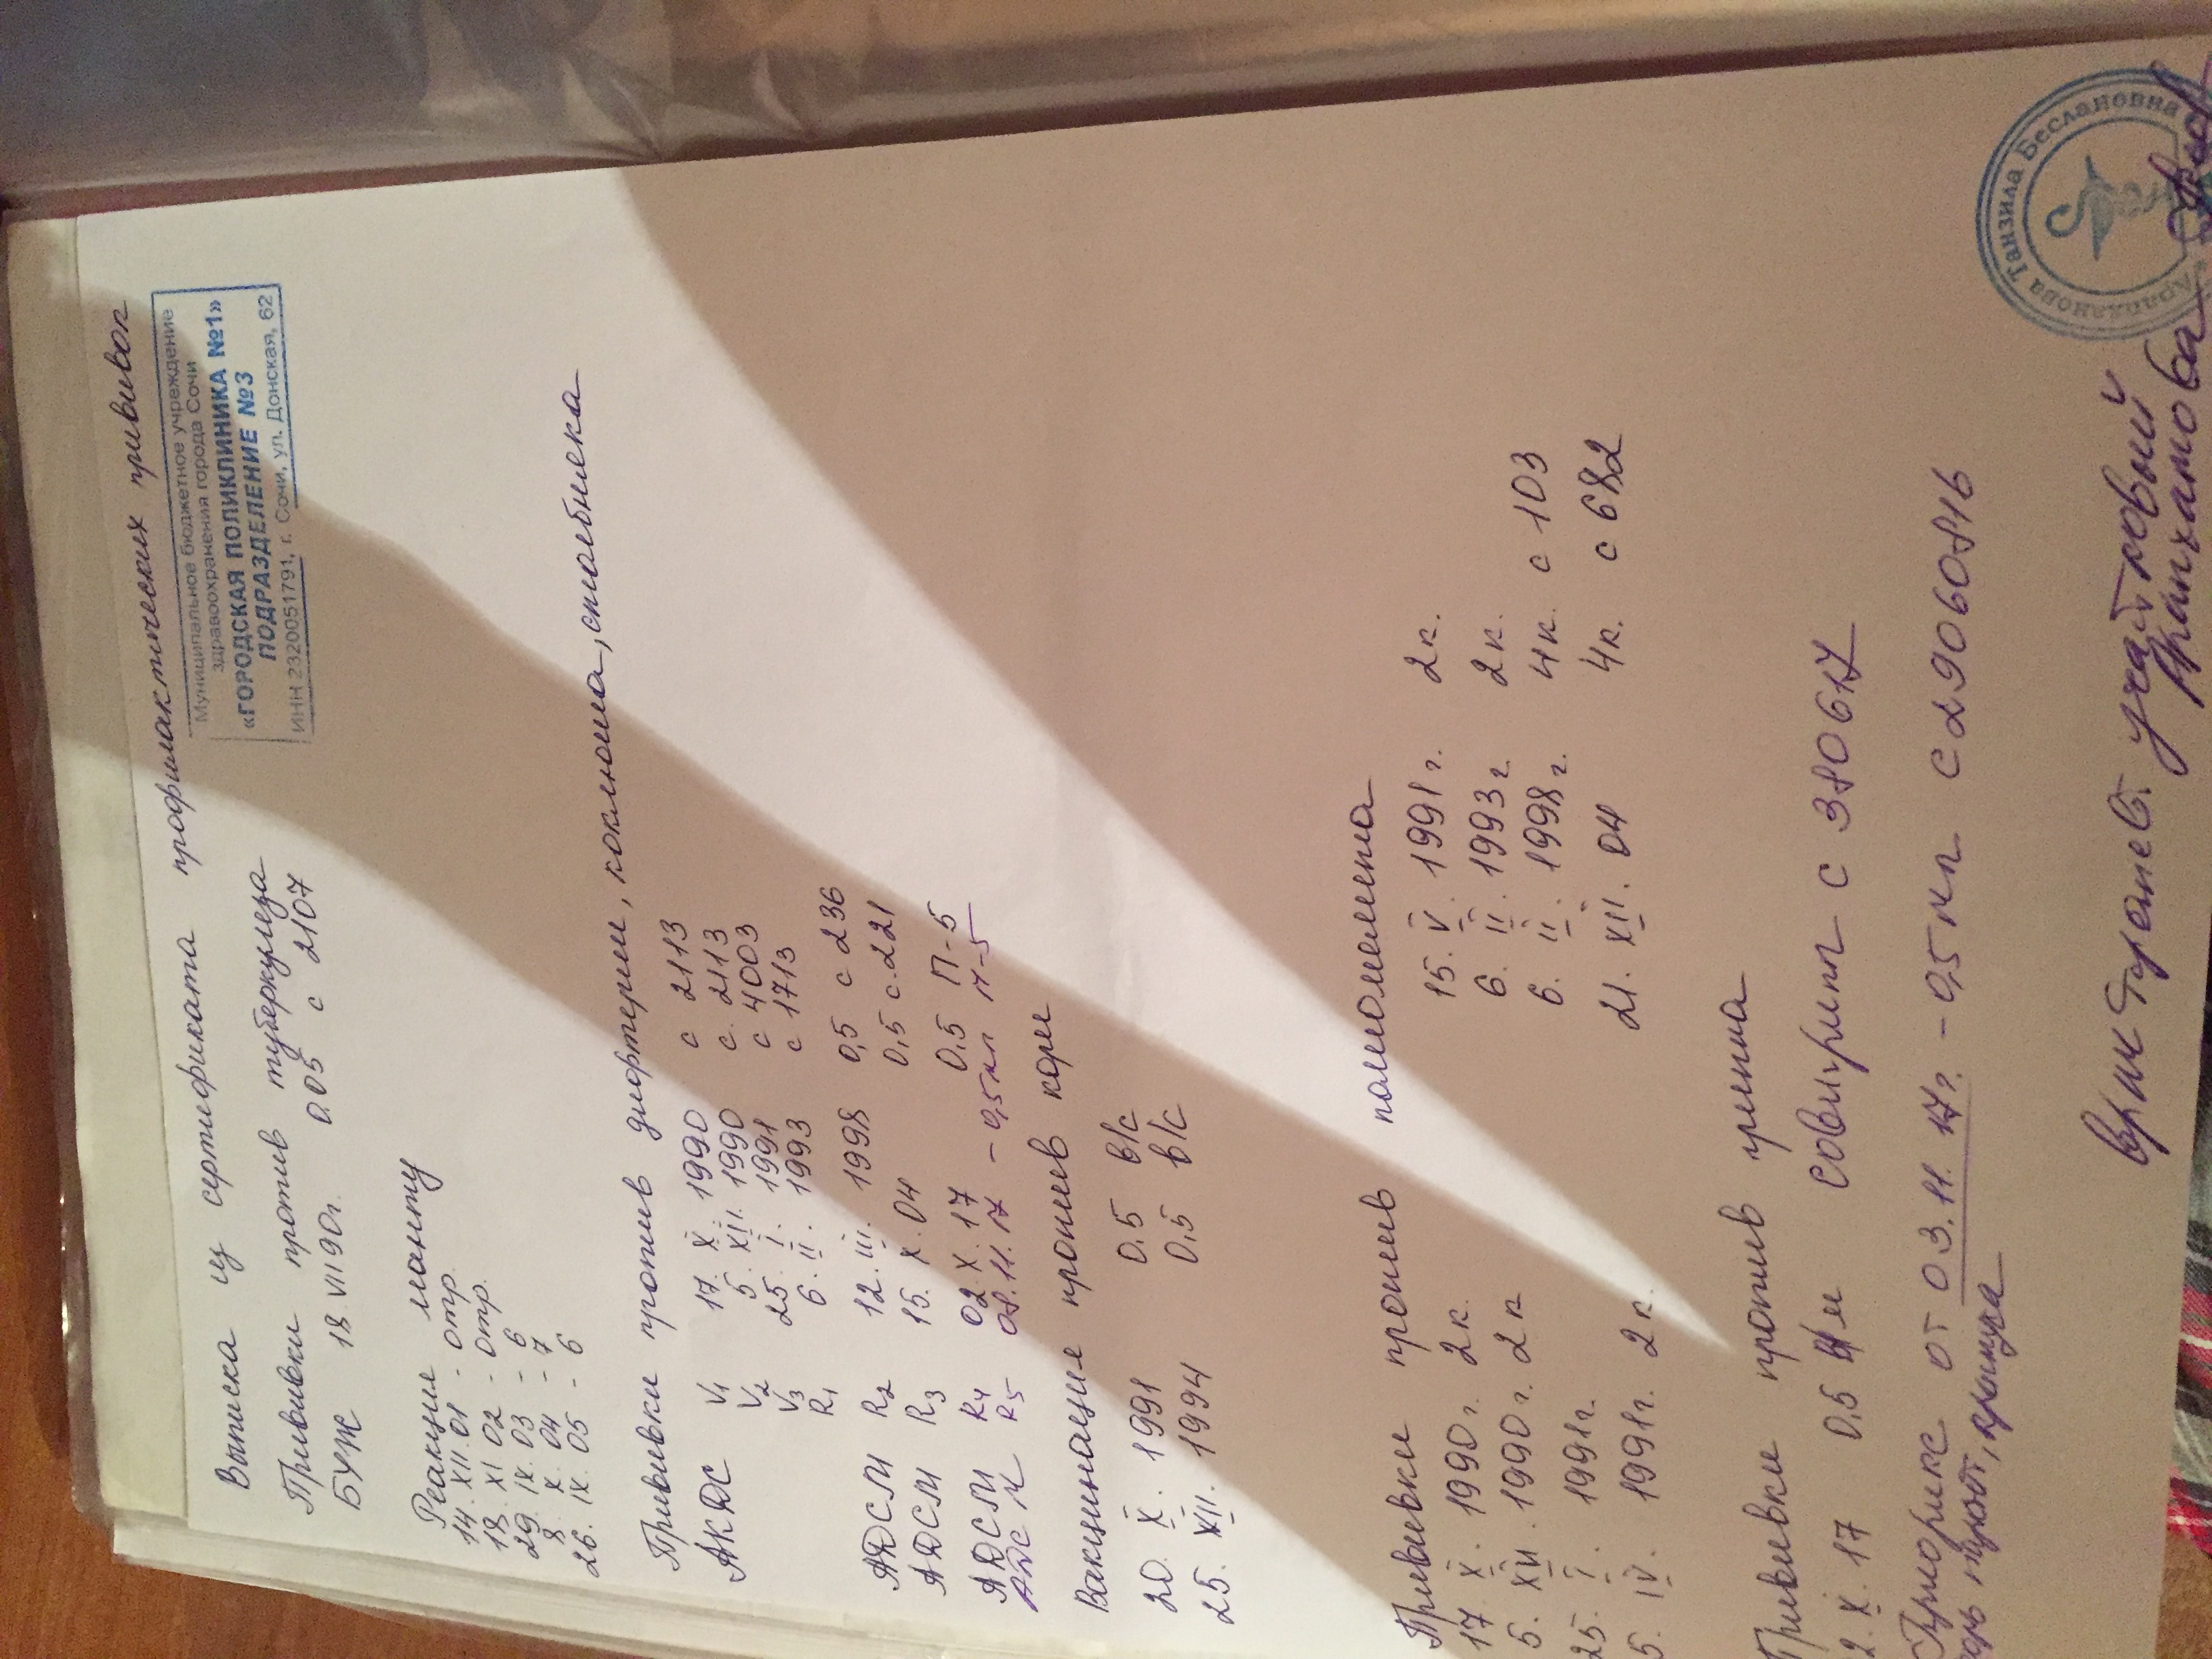 Выписка из сертификата профилактических прививок
Муниципальное бюджетное учреждение
здравоохранения города Сочи
«ГОРОДСКАЯ ПОЛИКЛИНИКА №1»
ПОДРАЗДЕЛЕНИЕ №3
ИНН 2320051791, г. Сочи, ул. Донская, 62
Прививки против туберкулеза
БЦЖ 18.VIII 90г. 0,05 с 2107
Реакции манту
14. XII. 01 - отр.
18. XI 02 - отр.
29. IX. 03 - 6
8. X. 04 - 7
26. IX. 05 - 6
Прививки против дифтерии, коклюша, столбняка
АКДС V1 17. X. 1990 с 2113
V2 5. XII. 1990 с. 2113
V3 25. I. 1991 с 4003
R1 6. II. 1993 с 1713
АДСМ R2 12. III. 1998 0,5 с 236
АДСМ R3 15. X. 04 0,5 с. 221
АДСМ R4 02. X. 17 0,5 П-5
АДС М R5 08. 11. 17 - 0,5мл П-5
Вакцинация против кори
20. X. 1991 0.5 в/с
25. XII. 1994 0,5 в/с
Прививки против полиомиелита
17. X. 1990г. 2к. 15. V. 1991г. 2к.
5. XII. 1990г. 2к 6. II. 1993г. 2к.
25. I. 1991г. 6. II. 1998г. 4к. с 103
5. IV. 1991г. 2к. 21. XII. 04 4к. с 682
Прививки против гриппа
2. X. 17 0,5 Совигрипп с 380617
Приорикс от 03. 11. 17г. - 0,5мл с 29060816
врач терапевт участковый
Арапханова
Арапханова Танзила Беслановна